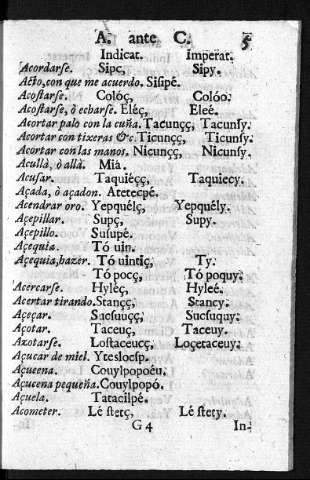 A. ante C. 5
Indicat. Imperat.
Acordarſe. Sipç, Sipy.
Acto, con que me acuerdo. Siſipé.
Acoſtarſe. Colóç, Colóo.
Acoſtarſe, ò echarse. Eléç, Eleé.
Acortar palo con la cuña. Tacunçç, Tacunſy.
Acortar con tixeras &c. Ticunçç, Ticunſy.
Acortar con las manos. Nicunçç, Nicunſy.
Acullà, ò allà. Mia.
Acuſar. Taquiécç, Taquiecy.
Açada, ò açadon. Atetecpé.
Acendrar oro. Yepquélç, Yepquély.
Açepillar. Supç, Supy.
Açepillo. Suſupé.
Açequia. Tó uin.
Açequia, hazer. Tó uintiç, Ty.
Tó pocç, Tó poquy.
Acercarse. Hyléç, Hyleé.
Acertar tirando. Stançç, Stancy.
Açeçar. Sucſuuçç, Sucſuquy.
Açotar. Taceuç, Taceuy.
Axotarſe. Loſtaceucç, Loçetaceuy.
Açucar de miel. Yteslocſp.
Açucena. Couylpopoéu.
Açucena pequeña. Couylpopó.
Açuela. Tatacilpé.
Acometer. Lé ſtetç, Lé ſtety.
G 4 In-